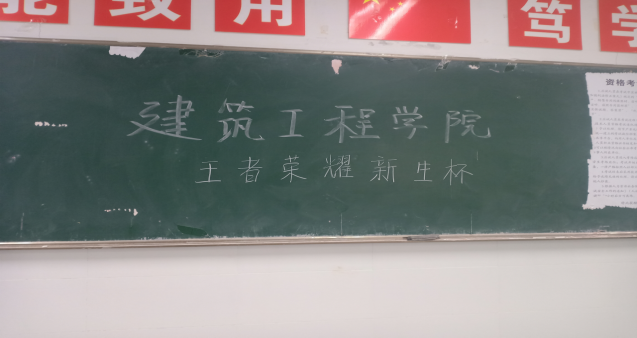 能致用
笃学
建筑工程学院
王者荣耀新生杯
资格考